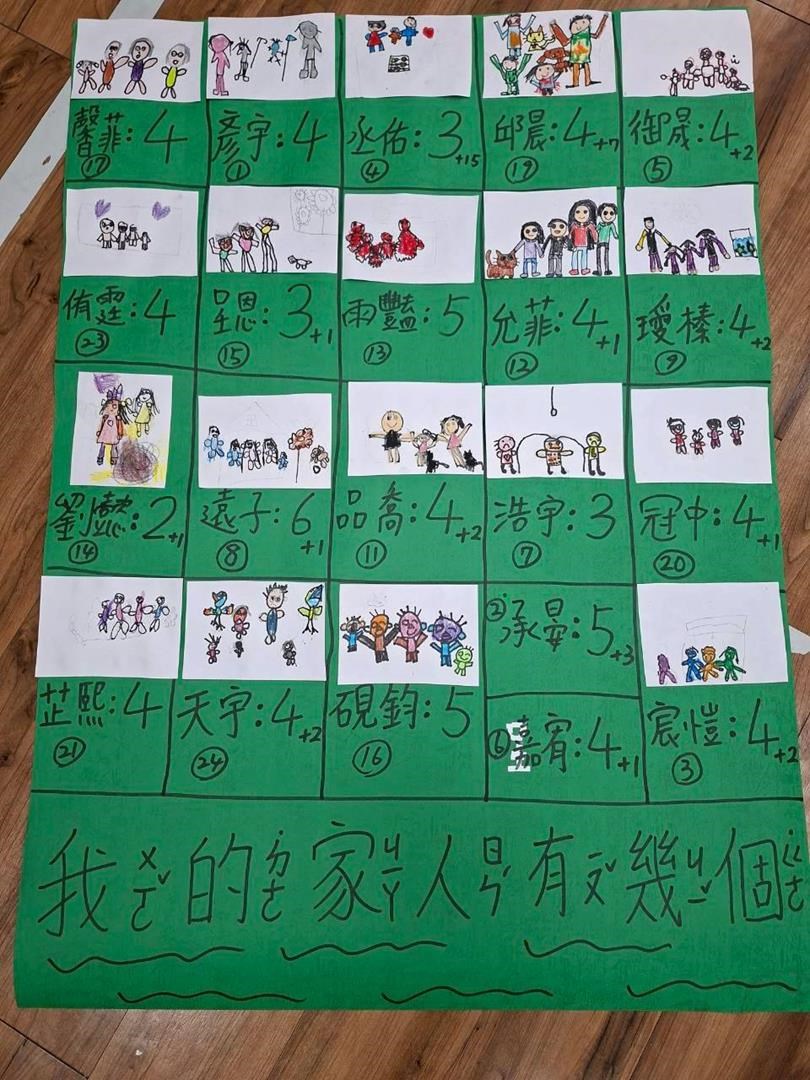 馨菲:4 ⑰
彥宇:4 ①
丞佑:3+15 ④
邱晨:4+7 ⑲
御晟:4+2 ⑤
侑霆:4 ㉓
恩:3+1 ⑮
雨豔:5 ⑬
允菲:4+1 ⑫
璦榛:4+2 ⑨
劉懿:2+1 ⑭
遠子:6+1 ⑧
品喬:4+2 ⑪
浩宇:3 ⑦
冠中:4+1 ⑳
芷熙:4 ㉑
天宇:4+2 ㉔
硯鈞:5 ⑯
②承晏:5+3
⑥嘉宥:4+1
宸愷:4+2 ③
我ㄨㄛˇ的˙ㄉㄜ家ㄐㄧㄚ人ㄖㄣˊ有ㄧㄡˇ幾ㄐㄧˇ個˙ㄍㄜ